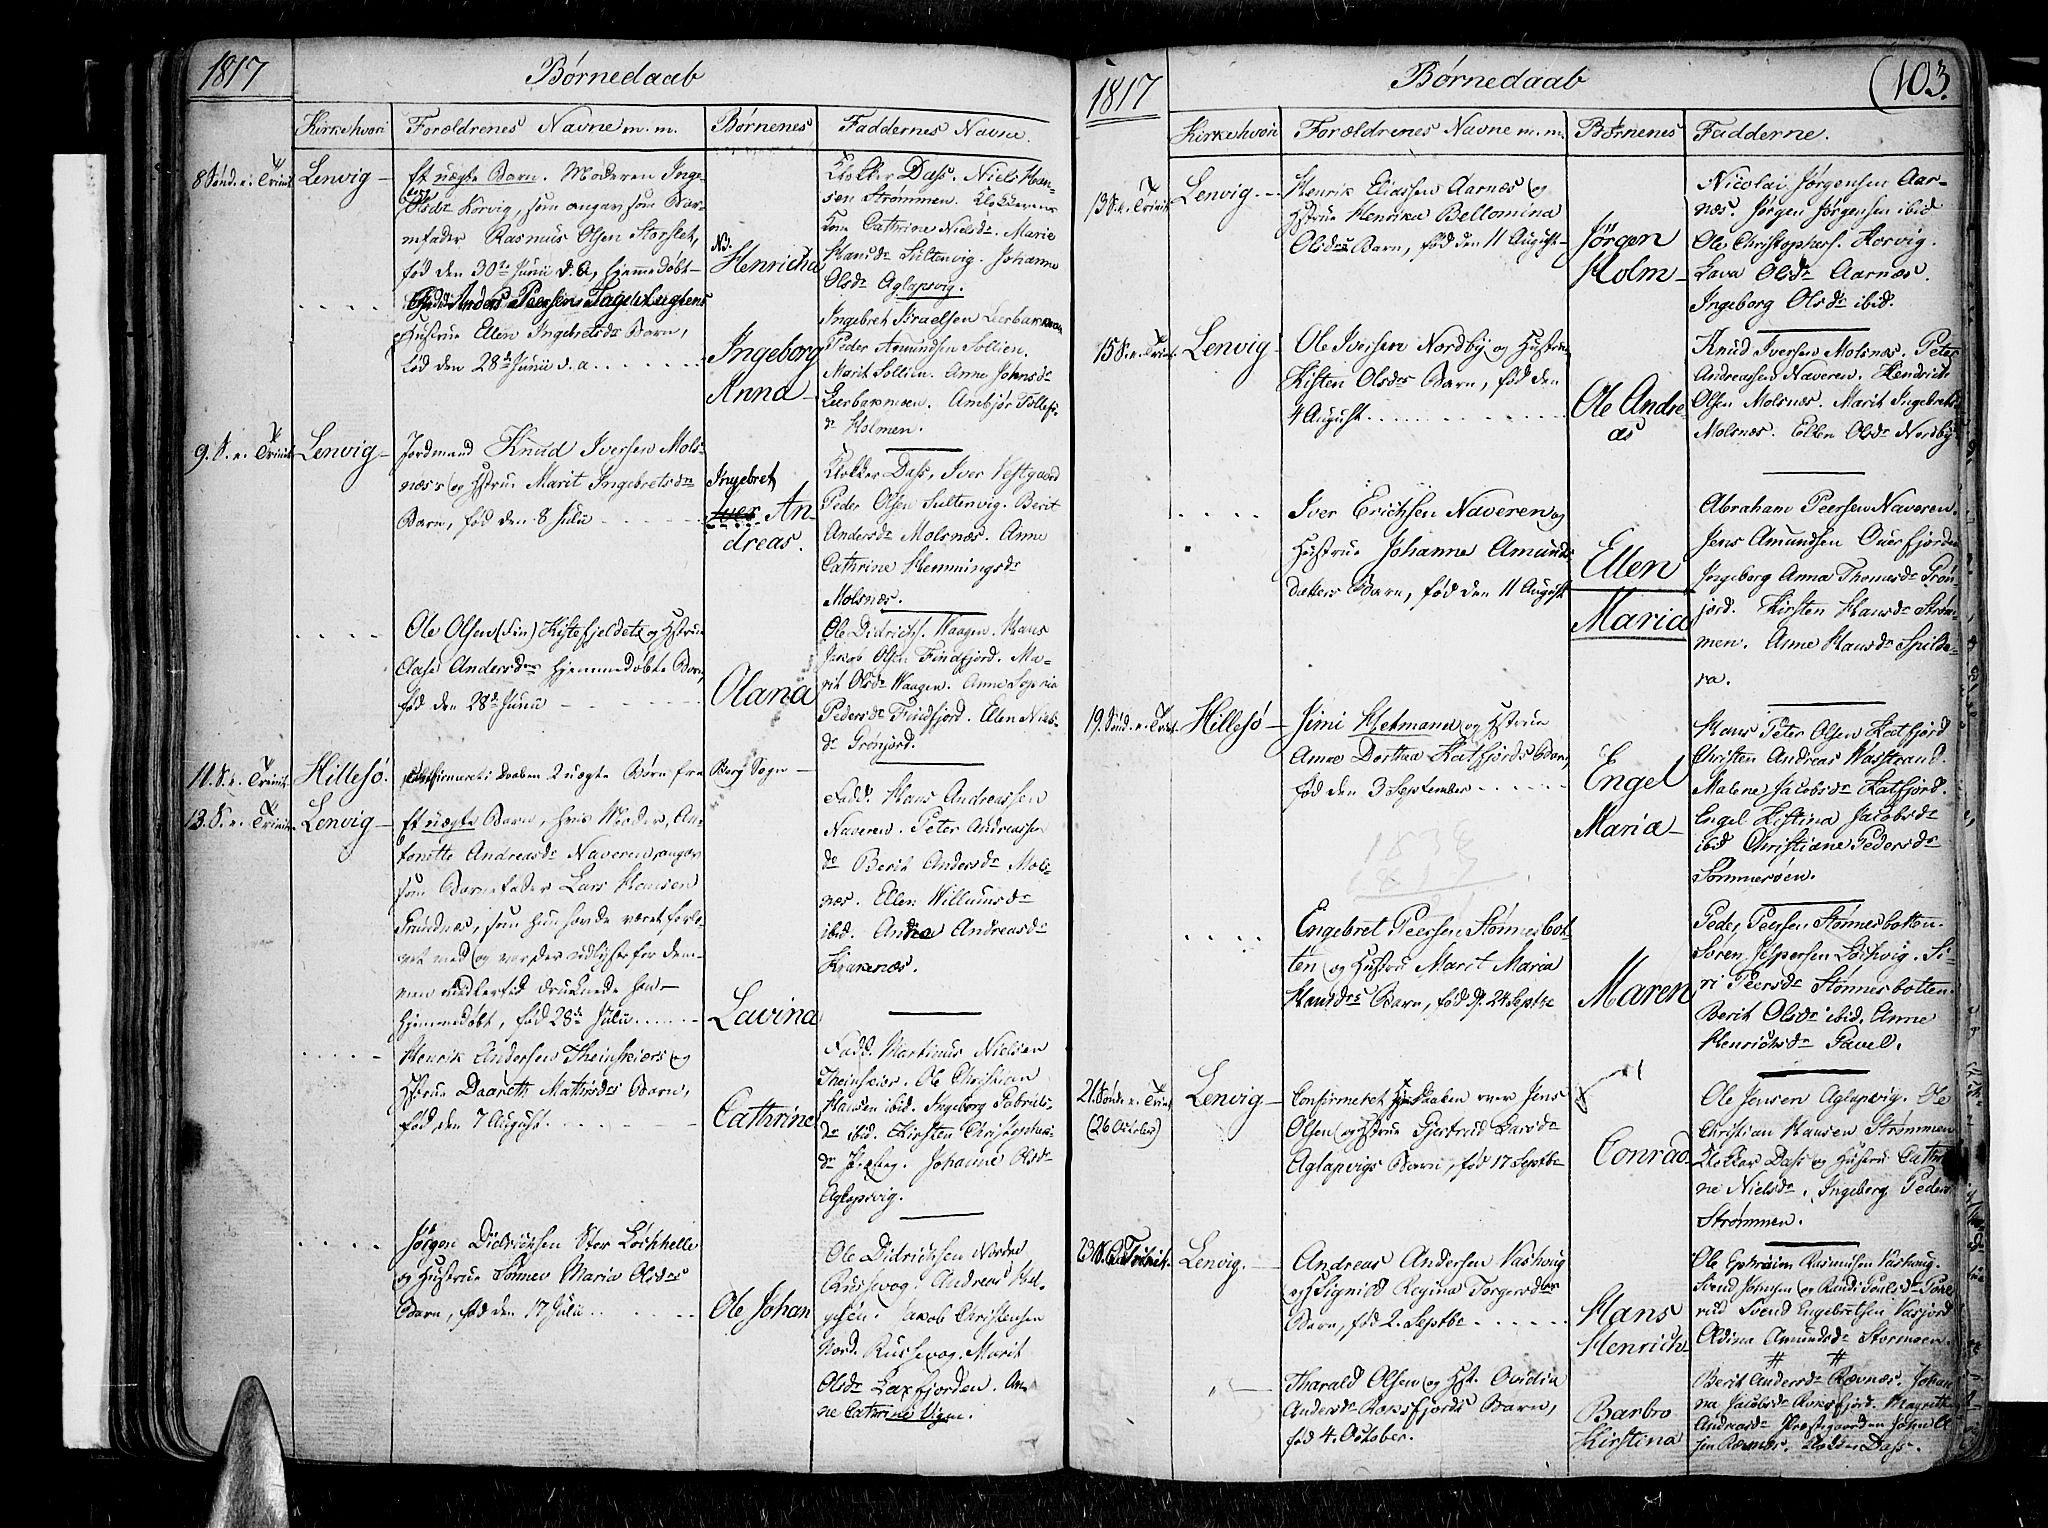 1817
Børnedaab
Kirke hvori
Forældrenes Navne m. m.
Børnenes
Faddernes Navne.
8 Sønd. e. Trinit.
Lenvig
Et uægte Barn. Moderen Inge-
borg Olsdr Korvig, som angav som Bar-
nefader Rasmus Olsen Storslet,
fød den 30te Junii d. a, hjemmedøbt
Nd.
Henricha
Klokker Dass. Niels Han-
sen Strømmen. Klokkerens
Kone Cathrine Nielsdr. Marie
Hansdr Sultenvig. Johanne
Olsdr Aglapsvig.
Anders Peersens
Hustrue Ellen Ingebretsdr Barn,
fød den 28de Junii d. a.
Ingeborg
Anna
Ingebret Israelsen Leerbakmoen
Peder Amundsen Sollien.
Marit Sollien. Anne Johnsdr
Leerbakmoen. Ambjør Tollefs-
dr Holmen.
9. S. e. Trinit.
Lenvig
Jordmand Knud Iversen Mols-
næs's og Hstrue Marit Ingebretsdrs
Barn, fød den 8 Julii
Ingebret
Iver An-
dreas.
Klokker Dass, Iver Vestgaard
Peder Olsen Sultenvig. Berit
Andersdr Molsnæs. Anne
Cathrine Hemmingsdr
Molsnæs.
Ole Olsen (Fin) Kistefjeldets og Hstrue
Aase Andersdrs hjemmedøbte Barn,
fød den 28de Junii
Olana
Ole Didrichs. Waagen. Hans
Jakob Olsen Findfjord. Ma-
rit Olsdr Waagen. Anne Sophia
Pedersdr Findfjord. Elen Niels-
dr Grønjord.
11. S. e. Trinit.
Hillesø.
Confirmeret Daaben 2 uægte Børn fra Berg Sogn
13. S. e. Trinit.
Lenvig
Et uægte Barn, hvis Moder, An-
tonette Andreasdr Naveren, angav
som Barnefader Lars Hansen
Grundnes, som hun havde været forlo-
vet med og var der udlyst for dem
men midlertid druknede han
hjemmedøbt, fød 28de Julii
Lavina
Fadd. Hans Andreassen
Naveren. Peter Andreassen
do Berit Andersdr Mols-
næs. Ellen Willumsdr
ibid. Andrea Andreasdr
Krakenæs.
Henrik Andersen Theinskiærs og
Hstrue Daareth Mathisdrs Barn,
fød den 7 August.
Cathrine
Fadd. Martinus Nielsen
Theinskier. Ole Christian
Hansen ibid. Ingeborg Gabriels-
dr ibid. Kirsten Christophers-
dr. Johanne Olsdr
Aglapsvig.
Jørgen Didrichsen Stor Løchhelle
og Hustrue Sønnev Maria Olsdrs
Barn, fød den 17 Julii
Ole Johan
Ole Didrichsen Nordre
Russevog. Andreas Hel-
gesen. Jakob Christensen
Nord. Russevog. Marit
Olsdr Laxfjorden. An-
ne Cathrine Vigen.
1817
Børnedaab
(103.
Kirke hvori
Forældrenes Navne m. m.
Børnenes
Fadderne.
13 S. e. Trinit.
Lenvig
Henrik Eliassen Aarnæs og
Hstrue Henrika Bellomina
Olsdrs Barn, fød den 11 August
Jørgen
Holm
Nicolai Jørgensen Aar-
næs. Jørgen Jørgensen ibid
Ole Christophers. Korvig.
Lava Olsdr Aarnæs.
Ingeborg Olsdr ibid.
15 S. e. Trinit.
Lenvig
Ole Iversen Nordby og Hustrue
Kisten Olsdrs Barn, fød den
4 August
Ole Andre-
as
Knud Iversen Molsnæs. Peter
Andreassen Naveren. Hendrich
Olsen Molsnæs. Marit Ingebretsdr
Molsnæs. Ellen Olsdr Nordby
Iver Erichsen Naveren og
Hustrue Johanne Amunds-
datters Barn, fød den 11 August
Ellen
Maria
Abraham Peersen Naveren.
Jens Amundsen Overfjorden
Ingeborg Anna Thomasdr Grøn-
jord. Kirsten Hansdr Strøm-
men. Anne Hansdr Spilde-
ra.
19. Sønd. e. Trinit.
Hillesø
Jimi Hetmann og Hstrue
Anne Dorthea Katfjords Barn,
fød den 3 September
Engel
Maria
Hans Peter Olsen Katfjord
Christen Andreas Wasstrand.
Malene Jacobsdr Katfjord.
Engel Kistina Jacobsdr
ibid Christiane Pedersdr
Sommerøen.
1834
1817
Engebret Peersen Stønnesbot-
ten og Hustru Marit Maria
Hansdrs Barn, fød d. 24 Septbr
Maren
Peder Peersen Stønnesbotten.
Søren Jespersen Løchvig. Si-
ri Peersdr Stønnesbotten.
Berit Olsdr ibid. Anne
Henrichsdr Gavel.
21. Sønd. e. Trinit.
(26 October)
Lenvig
Confirmeret Daaben over Jens
Olsen og Hstrue Gjertrud Larsdr
Aglapsvigs Barn, fød 17 Septbr
Conrad
Ole Jensen Aglapsvig. Ole
Christian Hansen Strømmen
Klokker Dass og Hustru Cathri-
ne Nielsdr. Ingeborg Peders
Strømmen.
23 S. e. Trinit.
Lenvig.
Andreas Andersen Vashoug
og Signild Regina Torgersdrs
Barn, fød 2. Septbr
Hans
Henrich
Ole Ephraim Rasmusen Vashoug.
Svend Johnsen og Randi Poulsdr
Svend Engebretsen Vasjord
Aldina Amundsdr Stormoen.
Tharald Olsen og Hst. Ovidia
Andersdr Roksfjords Barn,
fød 4. October.
Barbro
Kirstina
Berit Andersdr Rævnæs. Johan-
na Jacobsdr Roksfjord. Magrethe
Andreasdr Præstegaarden John Ol-
sen Rævnæs, Klokker Dass.